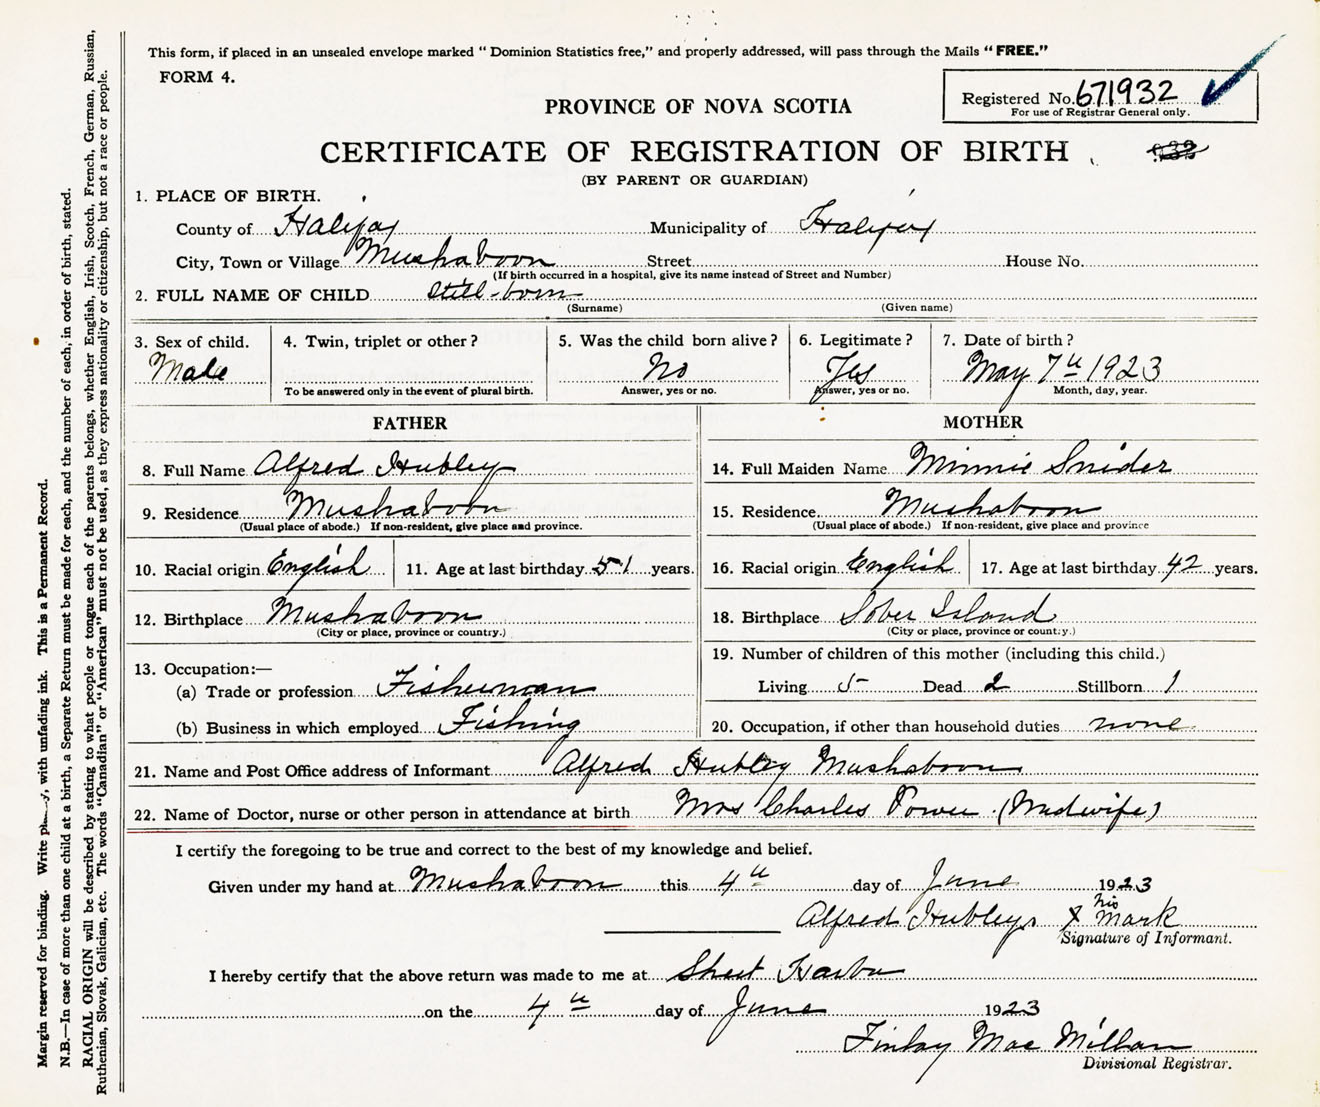 This form, if placed in an unsealed envelope marked “ Dominion Statistics free,” and properly addressed, will pass through the Mails “ FREE.”
FORM 4.
Registered No. 671932
For use of Registrar General only.
PROVINCE OF NOVA SCOTIA
CERTIFICATE OF REGISTRATION OF BIRTH
(BY PARENT OR GUARDIAN)
1. PLACE OF BIRTH.
County of Halifax Municipality of Halifax
City, Town or Village Mushaboon Street House No.
(If birth occurred in a hospital, give its name instead of Street and Number)
2. FULL NAME OF CHILD Still-born
(Surname) (Given name)
3. Sex of child. 4. Twin, triplet or other ? 5. Was the child born alive ? 6. Legitimate ? 7. Date of birth ?
Male No Yes May 7th 1923
To be answered only in the event of plural birth. Answer, yes or no. Answer, yes or no. Month, day, year.
FATHER MOTHER
8. Full Name Alfred Hubley 14. Full Maiden Name Minnie Snider
9. Residence Mushaboon 15. Residence. Mushaboon
(Usual place of abode.) If non-resident, give place and province. (Usual place of abode.) If non-resident, give place and province
10. Racial origin English 11. Age at last birthday 51 years. 16. Racial origin English 17. Age at last birthday 42 years.
12. Birthplace Mushaboon 18. Birthplace Sober Island
(City or place, province or country.) (City or place, province or country.)
13. Occupation:— 19. Number of children of this mother (including this child.)
(a) Trade or profession Fisherman Living 5 Dead 2 Stillborn 1
(b) Business in which employed Fishing 20. Occupation, if other than household duties none
21. Name and Post Office address of Informant Alfred Hubley Mushaboon
22. Name of Doctor, nurse or other person in attendance at birth Mrs Charles Power (Midwife)
I certify the foregoing to be true and correct to the best of my knowledge and belief.
Given under my hand at Mushaboon this 4th day of June 1923
his
Alfred Hubleys X Mark
Signature of Informant.
I hereby certify that the above return was made to me at Sheet Harbor
on the 4th day of June 1923
Finlay Mac Millan
Divisional Registrar.
Margin reserved for binding. Write , with unfading ink. This is a Permanent Record.
N.B.—In case of more than one child at a birth, a Separate Return must be made for each, and the number of each, in order of birth, stated.
RACIAL ORIGIN will be described by stating to what people or tongue each of the parents belongs, whether English, Irish, Scotch, French, German, Russian,
Ruthenian, Slovak, Galician, etc. The words “Canadian” or “American” must not be used, as they express nationality or citizenship, but not a race or people.